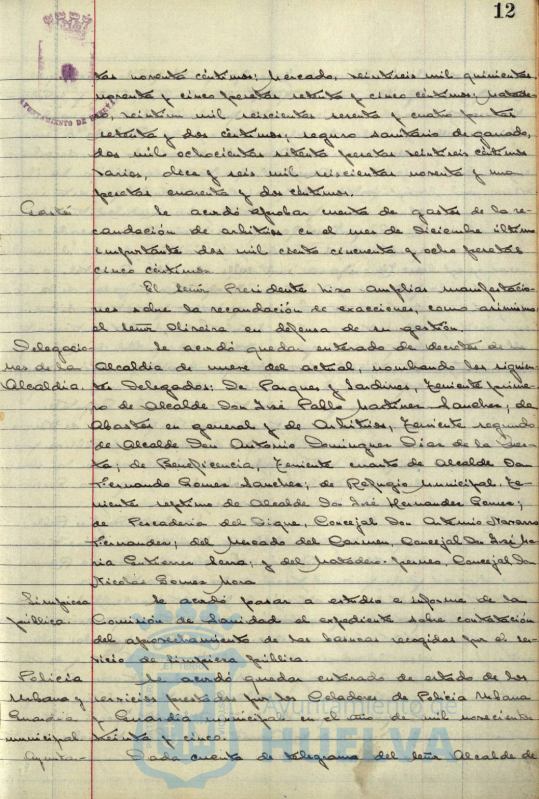 12
AYUNTAMIENTO DE HUELVA
tas noventa céntimos; Mercado, veintiseis mil quinientas
noventa y cinco pesetas setenta y cinco céntimos; Matade-
ro, veintiun mil seiscientas sesenta y cuatro pesetas
setenta y dos céntimos; seguro sanitario de ganado,
dos mil ochocientas setenta pesetas veintiseis céntimos
varios, diez y seis mil seiscientas noventa y una
pesetas cuarenta y dos céntimos.
Gastos Se acordó aprobar cuenta de gastos de la re-
caudación de arbitrios en el mes de Diciembre último
importante dos mil ciento cincuenta y ocho pesetas
cinco céntimos.
El Señor Presidente hizo amplias manifestacio-
nes sobre la recaudación de exacciones, como asimismo
el Señor Oliveira en defensa de su gestión.
Delegacio- Se acordó quedar enterado de decreto de la
nes de la Alcaldia de nueve del actual, nombrando los siguien-
Alcaldia. tes Delegados: De Parques y Jardines, Teniente prime-
ro de Alcalde Don José Pablo Martinez Sanchez; de
Abastos en general y de Arbitrios, Teniente segundo
de Alcalde Don Antonio Dominguez Diaz de la
de Beneficencia, Teniente cuarto de Alcalde Don
Fernando Gomez Sanchez; de Refugio Municipal, Te-
niente septimo de Alcalde Don José Hernandez Gomez;
de Pescaderia del Dique, Concejal Don Antonio Navarro
Fernandez; del Mercado del Carmen, Concejal Don José Ma-
ria Gutierrez Serra; y del Matadero Concejal Don
Nicolás Gomez Mora
Limpieza Se acordó pasar a estudio e informe de la
pública. Comisión de Sanidad el expediente sobre contratación
del aprovechamiento de las basuras recogidas por el ser-
vicio de limpieza pública.
Policia Se acordó quedar enterado de estado de los
Urbana y servicios prestados por los Celadores de Policia Urbana
Guardia y Guardia municipal en el año de mil novecientos
municipal treinta y cinco.
Ayunta- Dada cuenta de telegrama del Señor Alcalde de
Ayuntamiento de
HUELVA